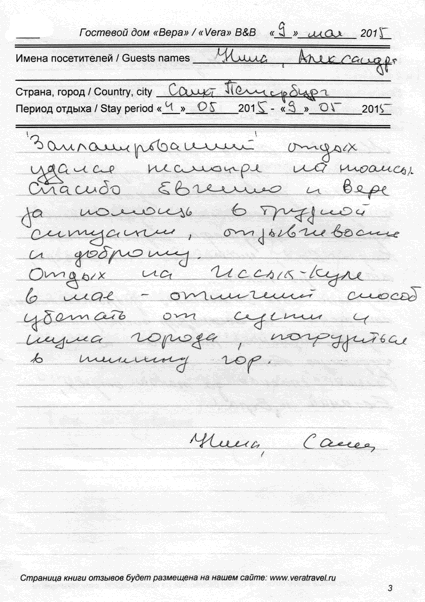 Гостевой дом «Вера» / «Vera» B&B « 9 » мая 2015
Имена посетителей / Guests names Нина, Александр
Страна, город / Country, city Санкт Петербург
Период отдыха / Stay period « 4 » 05 2015 - « 9 » 05 2015
"Запланированный" отдых
удался несмотря на нюансы.
Спасибо Евгению и Вере
за помощь в трудной
ситуации, отзывчивость
и доброту.
Отдых на Иссык-Куле
в мае - отличный способ
убежать от суеты и
шума города, погрузиться
в тишину гор.
Нина, Саша
Страница книги отзывов будет размещена на нашем сайте: www.veratravel.ru
3